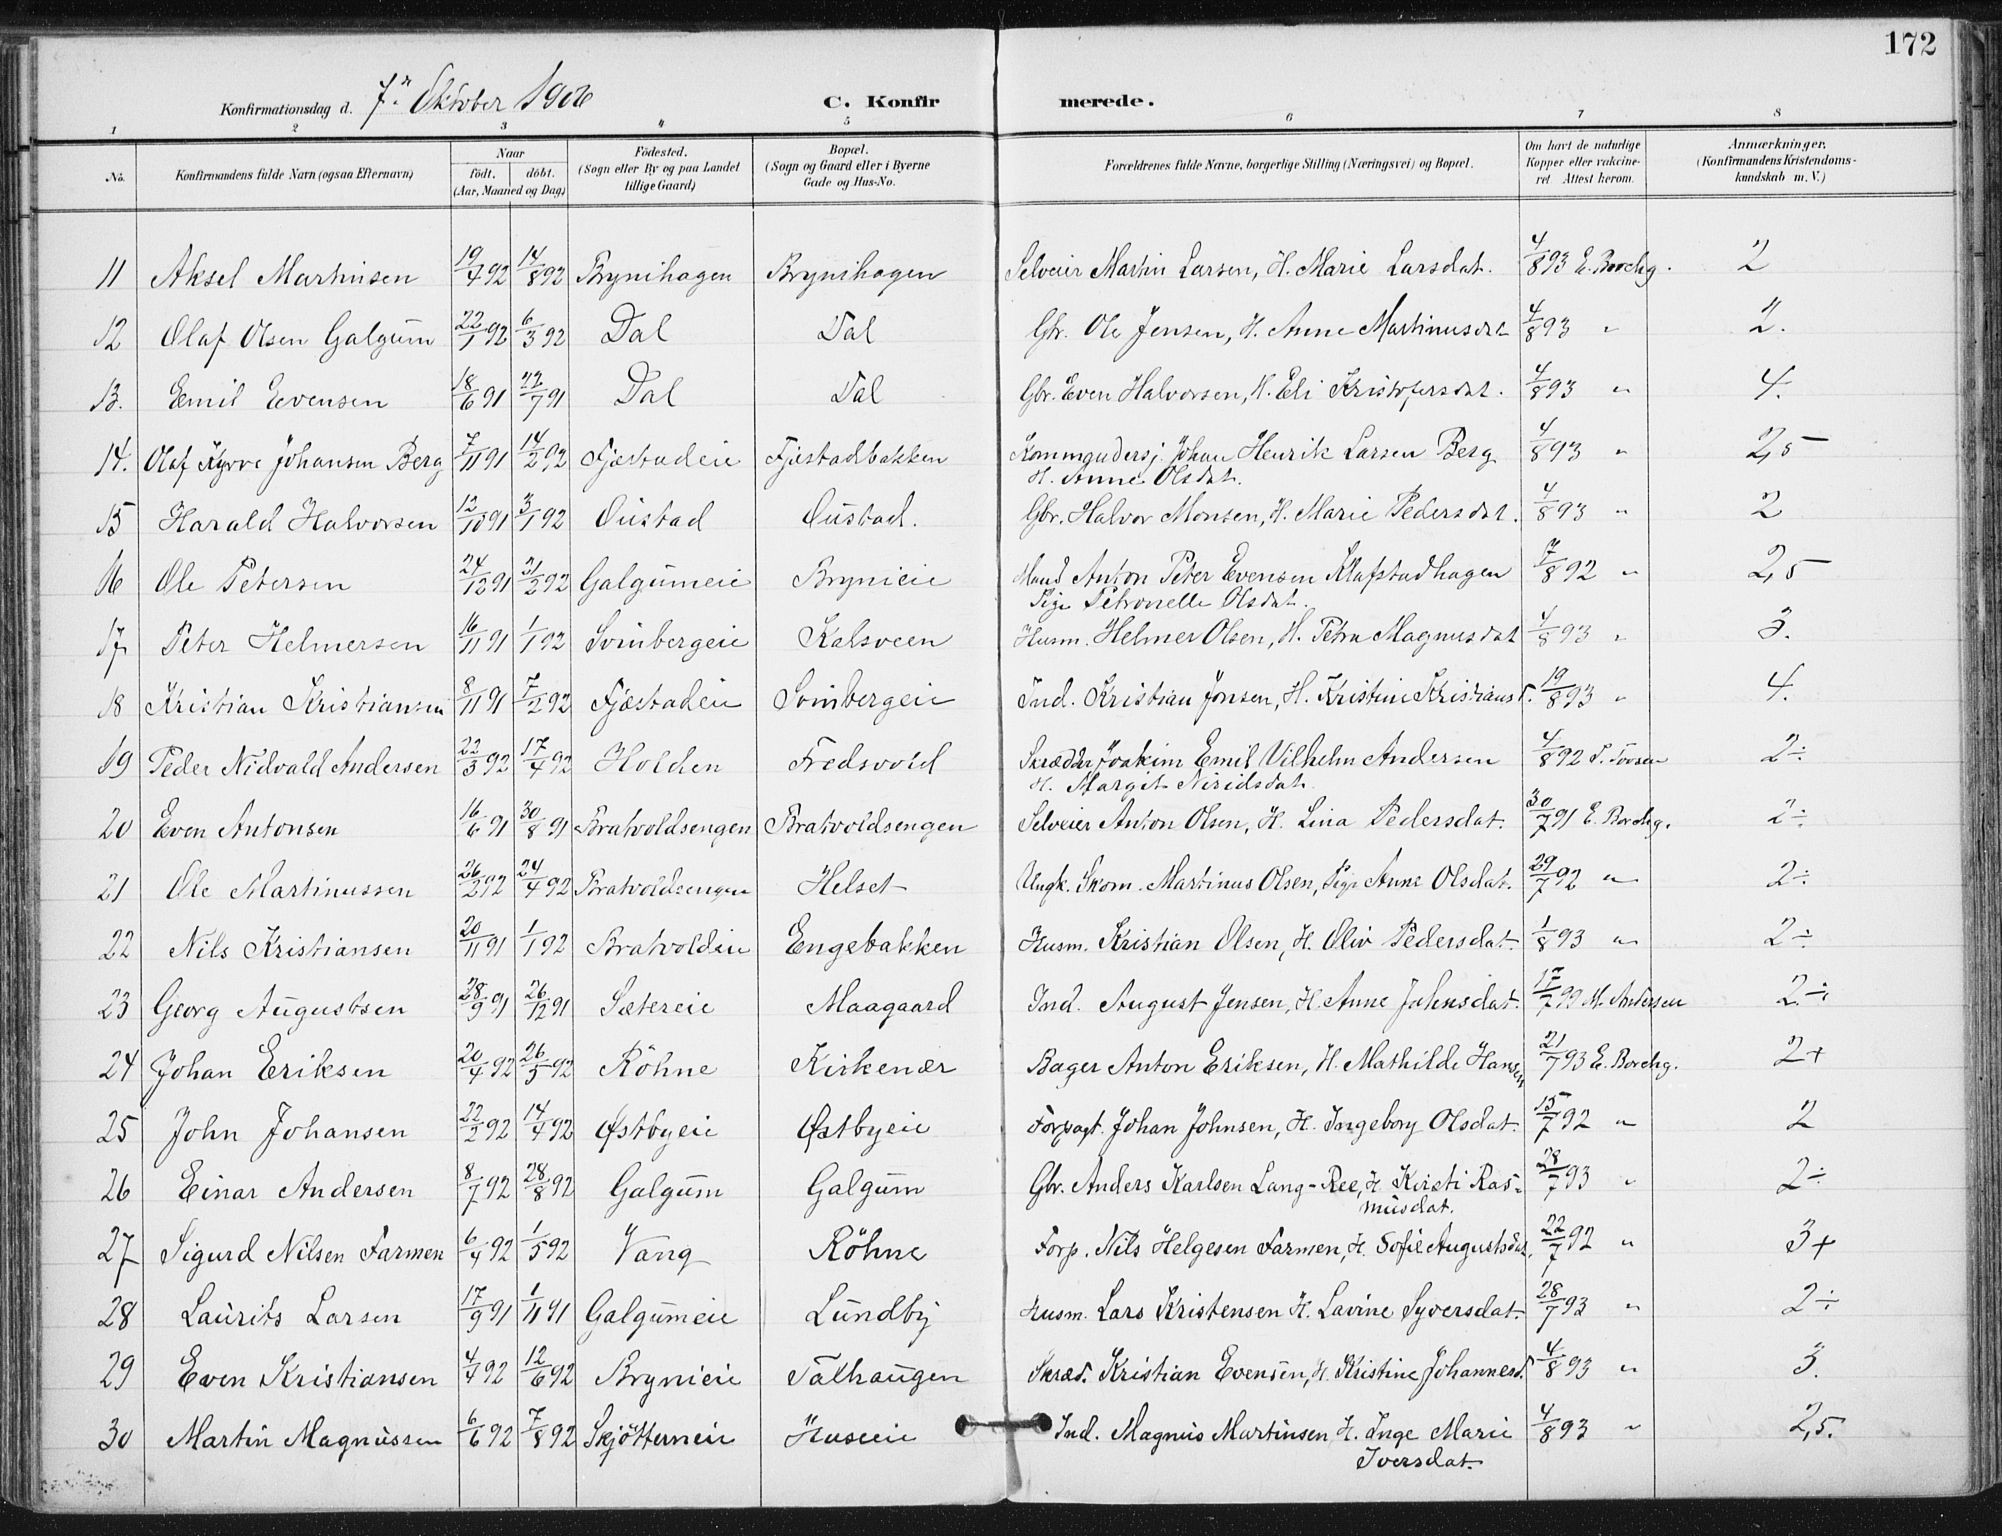 172
Konfirmationsdag d. 7de Oktober 1906 C. Konfirmerede.
1 2 3 4 5 6 7 8
No. Konfirmandens fulde Navn (ogsaa Efternavn) Naar født. døbt. (Aar, Maaned og Dag) Fødested. (Sogn eller By og paa Landet tillige Gaard) Bopæl. (Sogn og Gaard eller i Byerne Gade og Hus-No. Forældrenes fulde Navne, borgerlige Stilling (Næringsvei) og Bopæl. Om havt de naturlige Kopper eller vakcineret. Attest herom. Anmærkninger, (Konfirmandens Kristendomskundskab m. V.)
11 Aksel Martinsen 19/7 92 14/8 92 Brynihagen Brynihagen Selveier Martin Larsen, H. Marie Larsdat. 4/8 93 E. Borchg. 2
12 Olaf Olsen Galgum 22/1 92 6/3 92 Dal Dal Gbr. Ole Jensen, H. Anne Martinusdat 4/8 93 " 2.
13. Emil Evensen 18/6 91 22/7 91 Dal Dal Gbr. Even Halvorsen, H. Eli Kristofersdat. 4/8 93 " 4.
14. Olaf Kyrre Johansen Berg 7/11 91 14/2 92 Fjæstadeie Fjæstadbakken Johan Henrik Larsen Berg 4/8 93 " 2,5
H. Anne Olsdat.
15 Harald Halvorsen 12/10 91 3/1 92 Oustad Oustad. Gbr. Halvor Monsen, H. Marie Pedersdat. 4/8 93 " 2
16 Ole Petersen 24/12 91 21/2 92 Galgumeie Brynieie Anton Peter Evensen Klafstadhagen 7/8 92 " 2,5
Pige Petronelle Olsdat.
17 Peter Helmersen 16/11 91 1/1 92 Svinbergeie Kalsveen Husm. Helmer Olsen, H. Petra Magnusdat 4/8 93 " 3.
18 Kristian Kristiansen 8/11 91 7/2 92 Fjæstadeie Svinbergeie Ind. Kristian Jonsen, H. Kristine Kristiansd. 19/8 93 " 4.
19 Peder Nidvald Andersen 22/3 92 17/4 92 Holden Fredsvold Skrædder Joakim Emil Vilhelm Andersen 4/8 92 2÷
H. Margit Niridsdat.
20 Even Antonsen 16/6 91 30/8 91 Bratvoldsengen Bratvoldsengen Selveier Anton Olsen, H. Lina Pedersdat. 30/7 91 E. Borchg. 2÷
21 Ole Martinussen 26/2 92 24/4 92 Bratvoldsengen Helset Ungk. Skom. Martinus Olsen, Pige Anne Olsdat. 29/7 92 " 2÷
22 Nils Kristiansen 20/11 91 1/1 92 Bratvoldeie Engebakken Husm. Kristian Olsen, H. Oliv Pedersdat. 1/8 93 " 2÷
23 Georg Augustsen 28/9 91 26/12 91 Sætereie Maagaard Ind. August Jensen, H. Anne Johnsdat. 17/7 99 M. Andersen 2÷
24 Johan Eriksen 20/4 92 26/5 92 Röhne Kirkenær Bager Anton Eriksen, H. Mathilde Hansen 21/7 93 E. Borchg. 2+
25 John Johansen 22/2 92 14/4 92 Østbyeie Østbyeie Forpagt. Johan Johnsen, H. Ingeborg Olsdat. 15/7 92 " 2
26 Einar Andersen 8/7 92 28/8 92 Galgum Galgum Gbr. Anders Karlsen Lang-Ree, H. Kirsti Ras- 28/7 93 " 2÷
musdat.
27 Sigurd Nilsen Farmen 6/4 92 1/5 92 Vang Röhne Forp. Nils Helgesen Farmen, H. Sofie Augustsdat. 22/7 92 " 3+
28 Laurits Larsen 17/9 91 1/11 91 Galgumeie Lundby Husm. Lars Kristensen H. Lavine Syversdat. 28/7 93 " 2÷
29 Even Kristiansen 4/4 92 12/6 92 Brynieie Dalhaugen Skræd. Kristian Evensen, H. Kristine Johannesd. 4/8 93 " 3.
30 Martin Magnussen 6/6 92 7/8 92 Skjötterneie Huseeie Ind. Magnus Martinsen H. Inge Marie 4/8 93 " 2,5.
Iversdat.